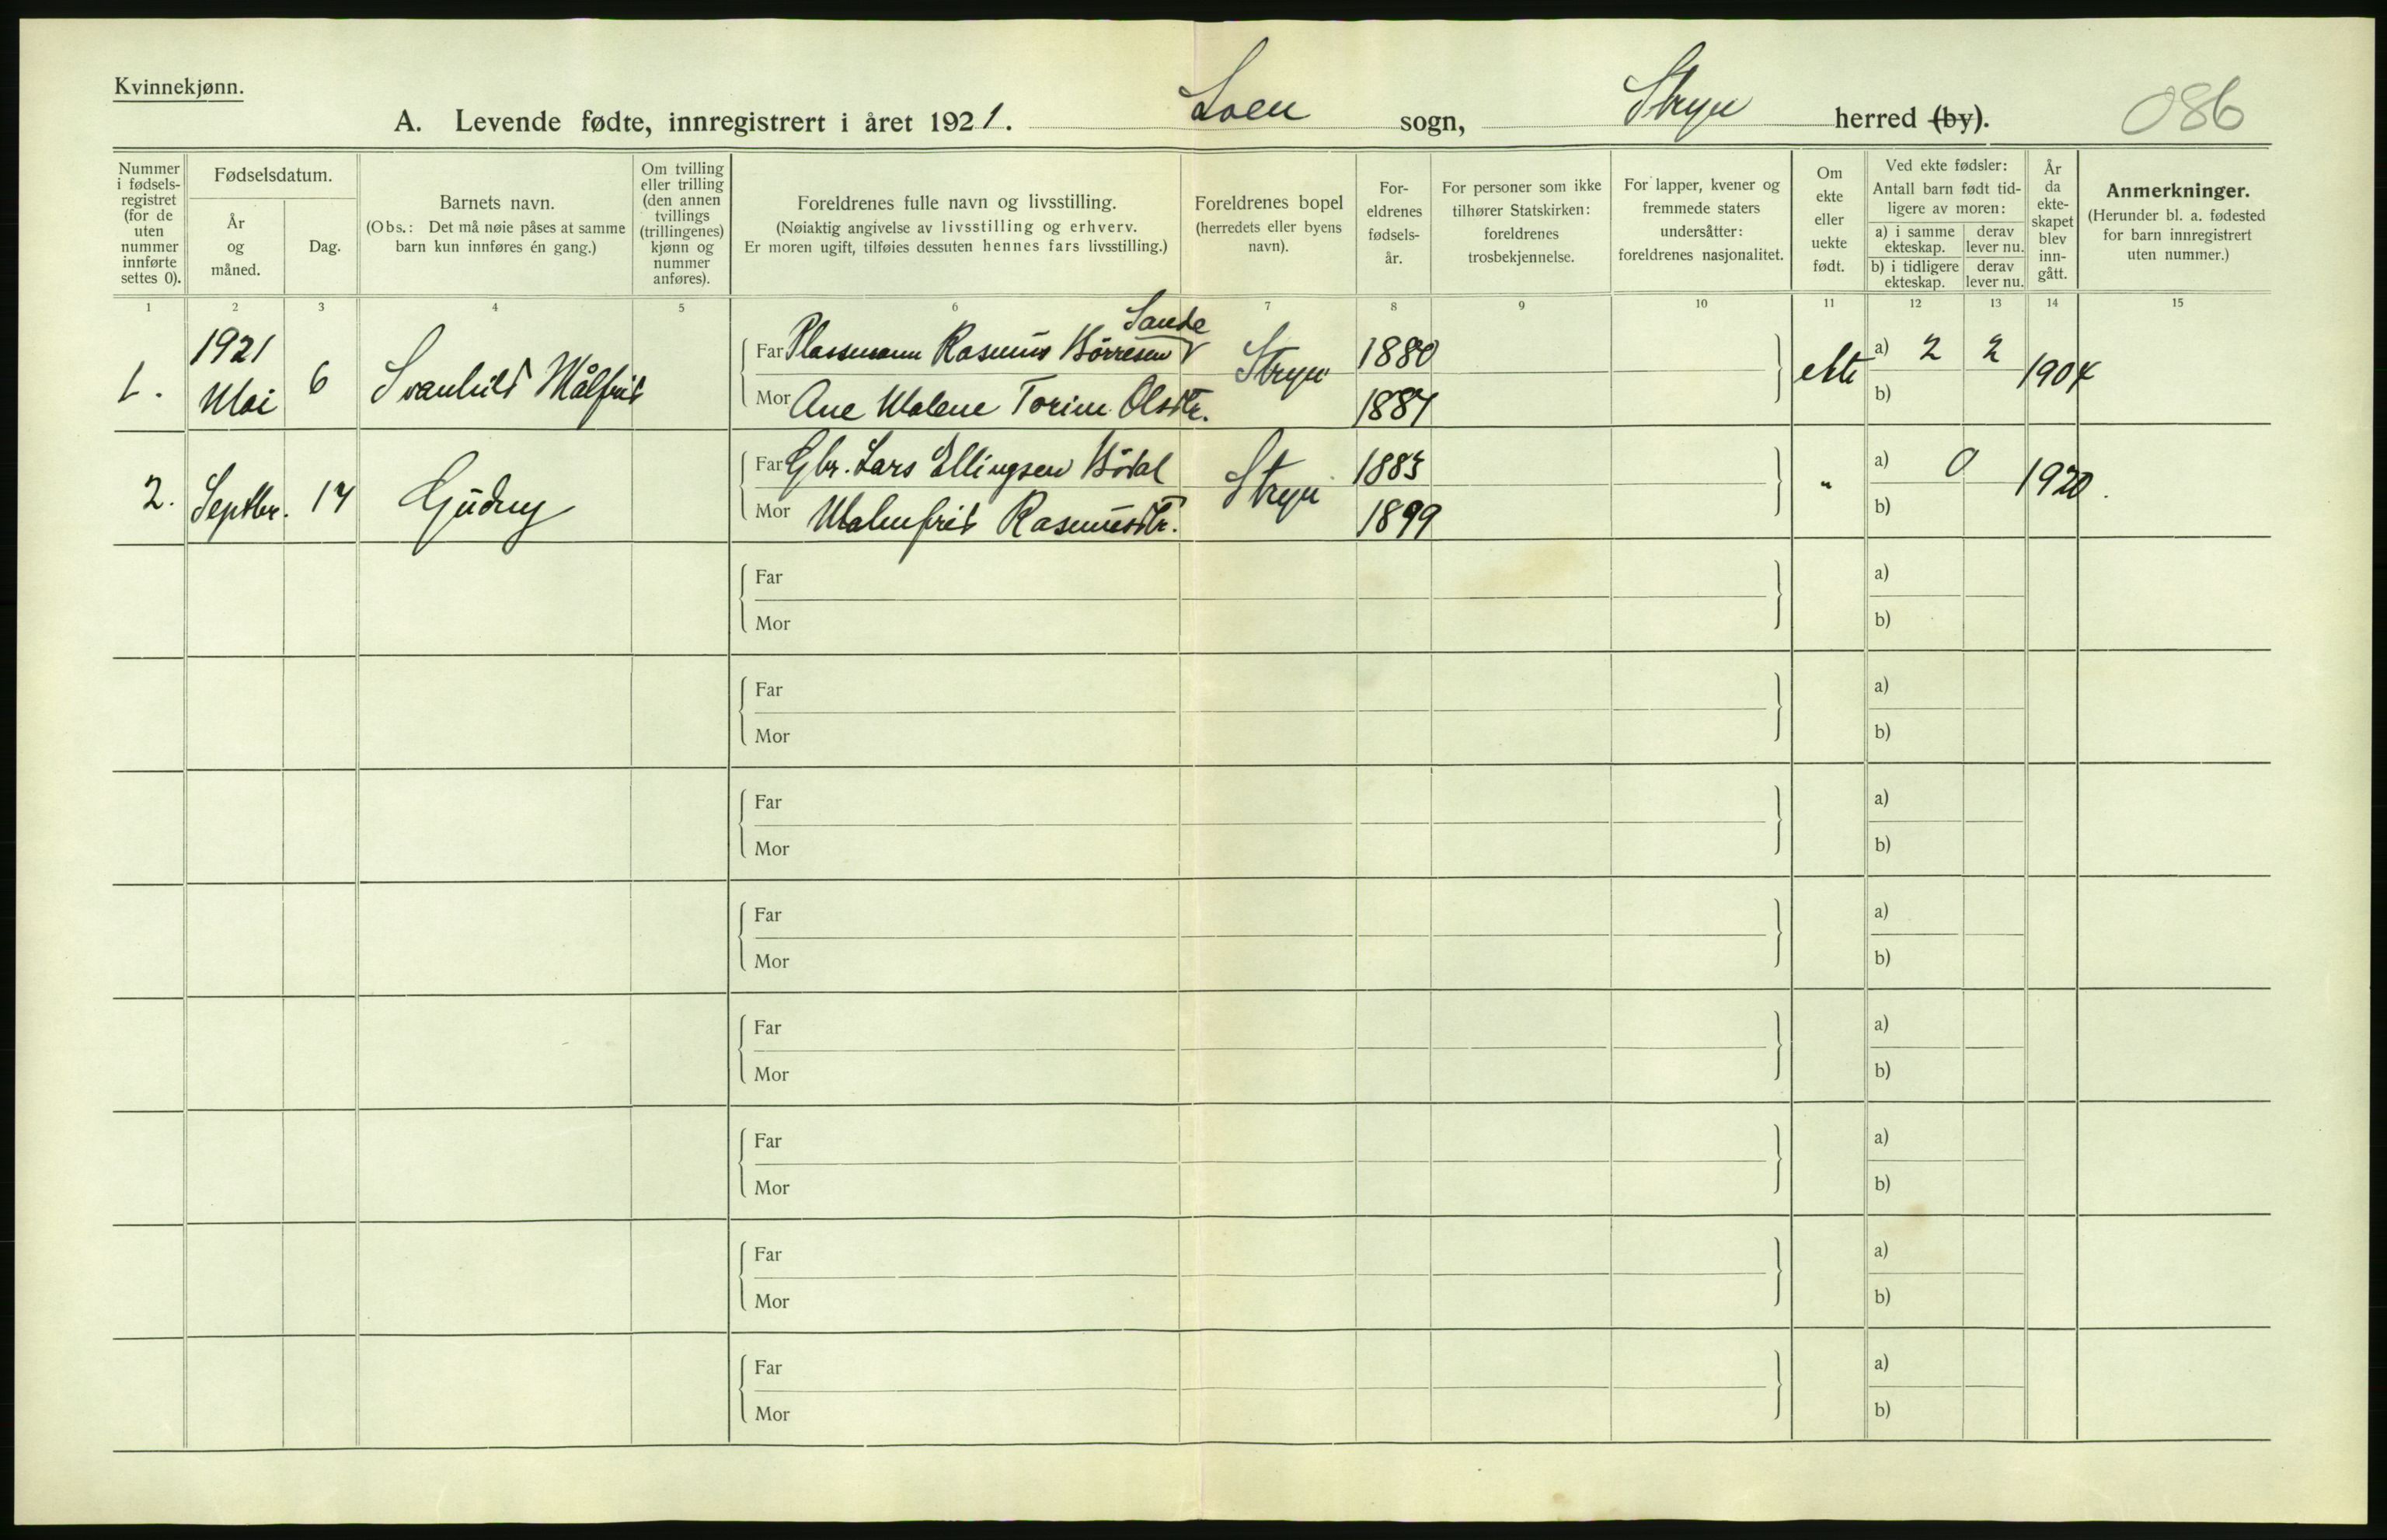 Kvinnekjønn.
A. Levende fødte, innregistrert i året 1921. Loen sogn, Stryn herred (by).
086
Nummer i fødsels- registret (for de uten nummer innførte settes 0).
Fødselsdatum.
År og måned.
Dag.
Barnets navn.
(Obs.: Det må nøie påses at samme barn kun innføres én gang.)
Om tvilling eller trilling (den annen tvillings (trillingenes) kjønn og nummer anføres).
Foreldrenes fulle navn og livsstilling.
(Nøiaktig angivelse av livsstilling og erhverv.
Er moren ugift, tilføies dessuten hennes fars livsstilling.)
Foreldrenes bopel
(herredets eller byens navn).
For- eldrenes fødsels- år.
For personer som ikke tilhører Statskirken: foreldrenes trosbekjennelse.
For lapper, kvener og fremmede staters undersåtter: foreldrenes nasjonalitet.
Om ekte eller uekte født.
Ved ekte fødsler:
Antall barn født tid- ligere av moren:
a) i samme ekteskap.
derav lever nu.
b) i tidligere ekteskap.
derav lever nu.
År da ekte- skapet blev inn- gått.
Anmerkninger.
(Herunder bl. a. fødested for barn innregistrert uten nummer.)
1 2 3 4 5 6 7 8 9 10 11 12 13 14 15
1. 1921 Mai 6 Svanhild Målfrid
Far Plassmann Rasmus Börresen Sande Stryn 1880 ekte a) 2 2 1904
Mor Ane Malene Torine Olsdtr. 1884 b)
2. Septbr. 14 Gudny
Far Gbr. Lars Ellingsen Bödal Stryn 1883 " a) 0 1920.
Mor Malenfrid Rasmusdtr. 1899 b)
Far a)
Mor b)
Far a)
Mor b)
Far a)
Mor b)
Far a)
Mor b)
Far a)
Mor b)
Far a)
Mor b)
Far a)
Mor b)
Far a)
Mor b)